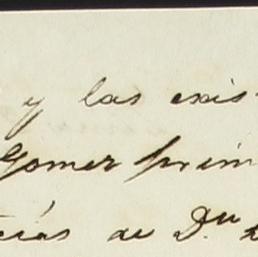 y las exis
Gomez prim
cias de Dⁿ